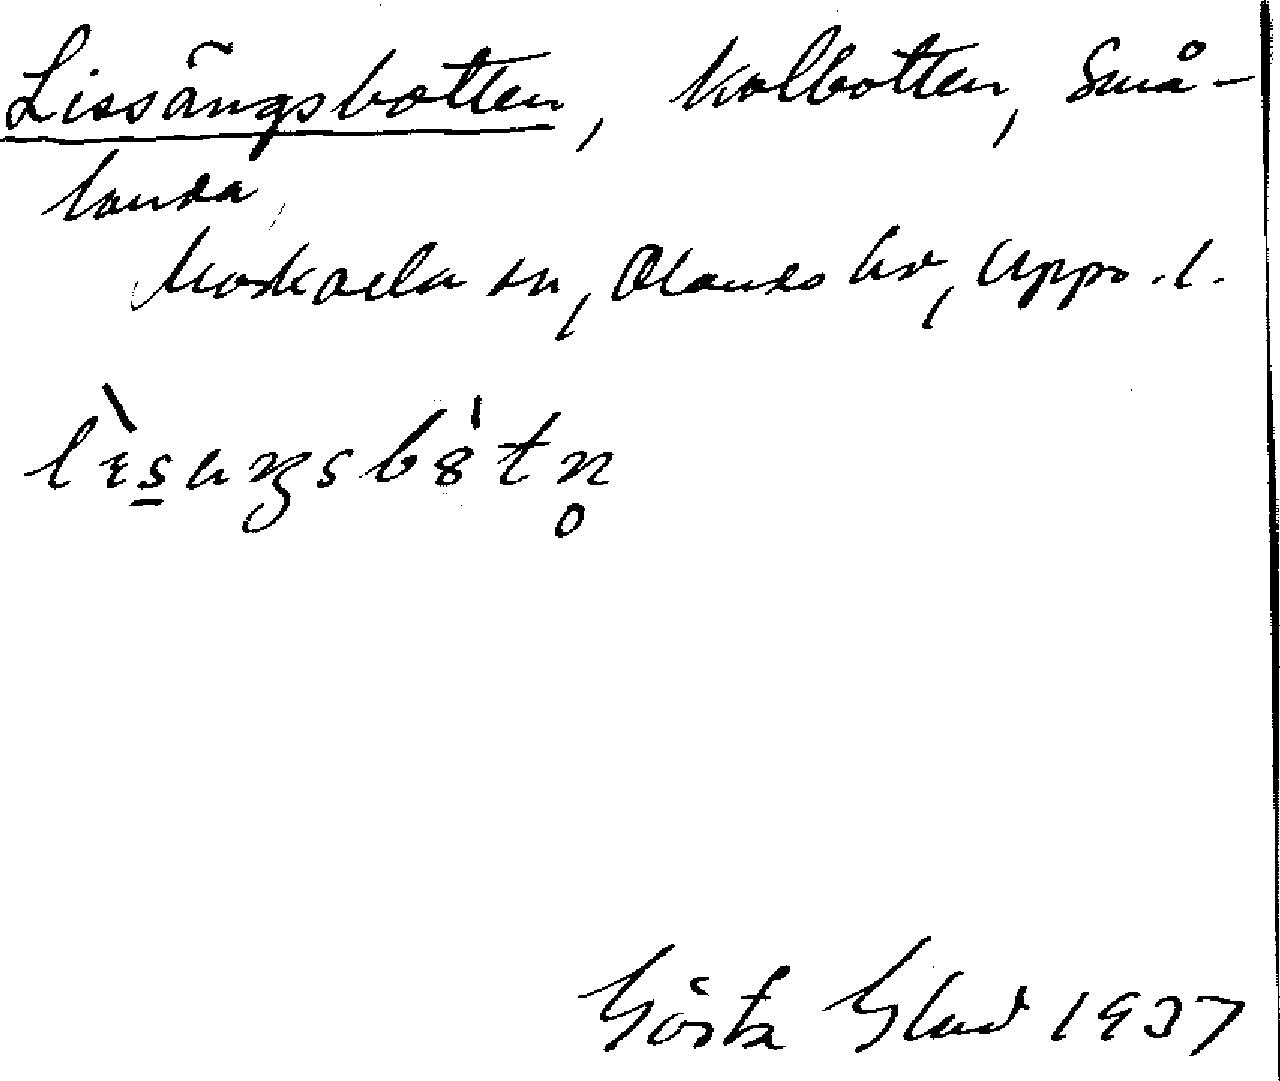 Lissängsbotten, kolbotten, Små-
landa,
Morkarla sn, Olands hd, Upps. l.
Gösta Glad 1937